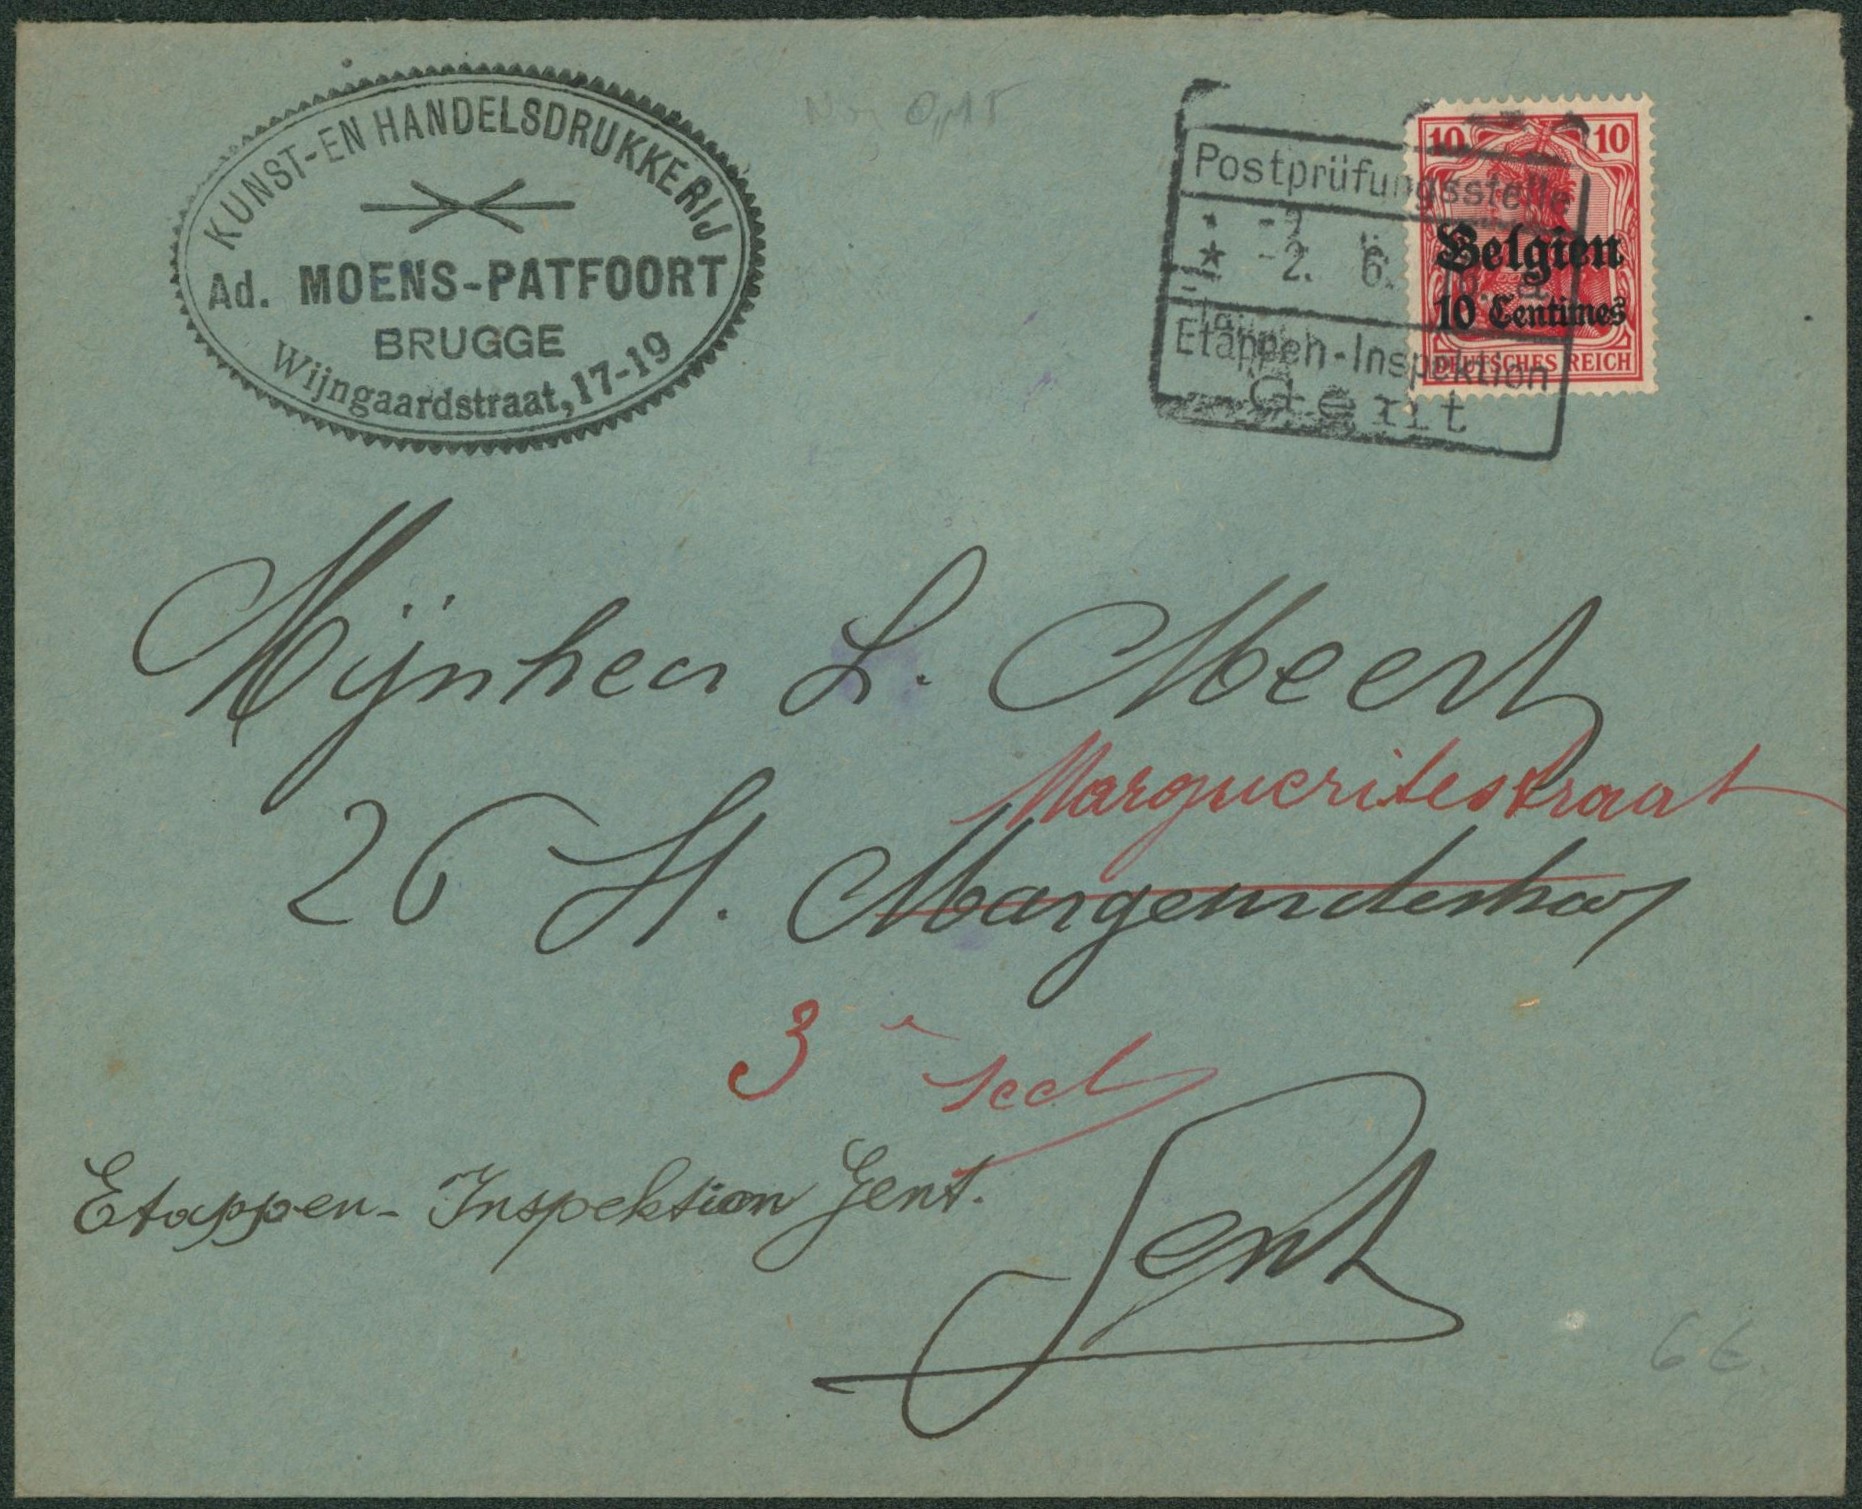 KUNST-EN HANDELSDRUKKERIJ
Ad. MOENS-PATFOORT
BRUGGE
Wijngaardstraat, 17-19
Postprüfungsstelle
* -2. 6.
Etappen-Inspektion
Gent
10 10
Belgien
10 Centimes
DEUTSCHES REICH
Mijnheer L. Meert
Margueritestraat
26 St.
3e sect
Etappen-Inspektion Gent.
Gent
6 €.